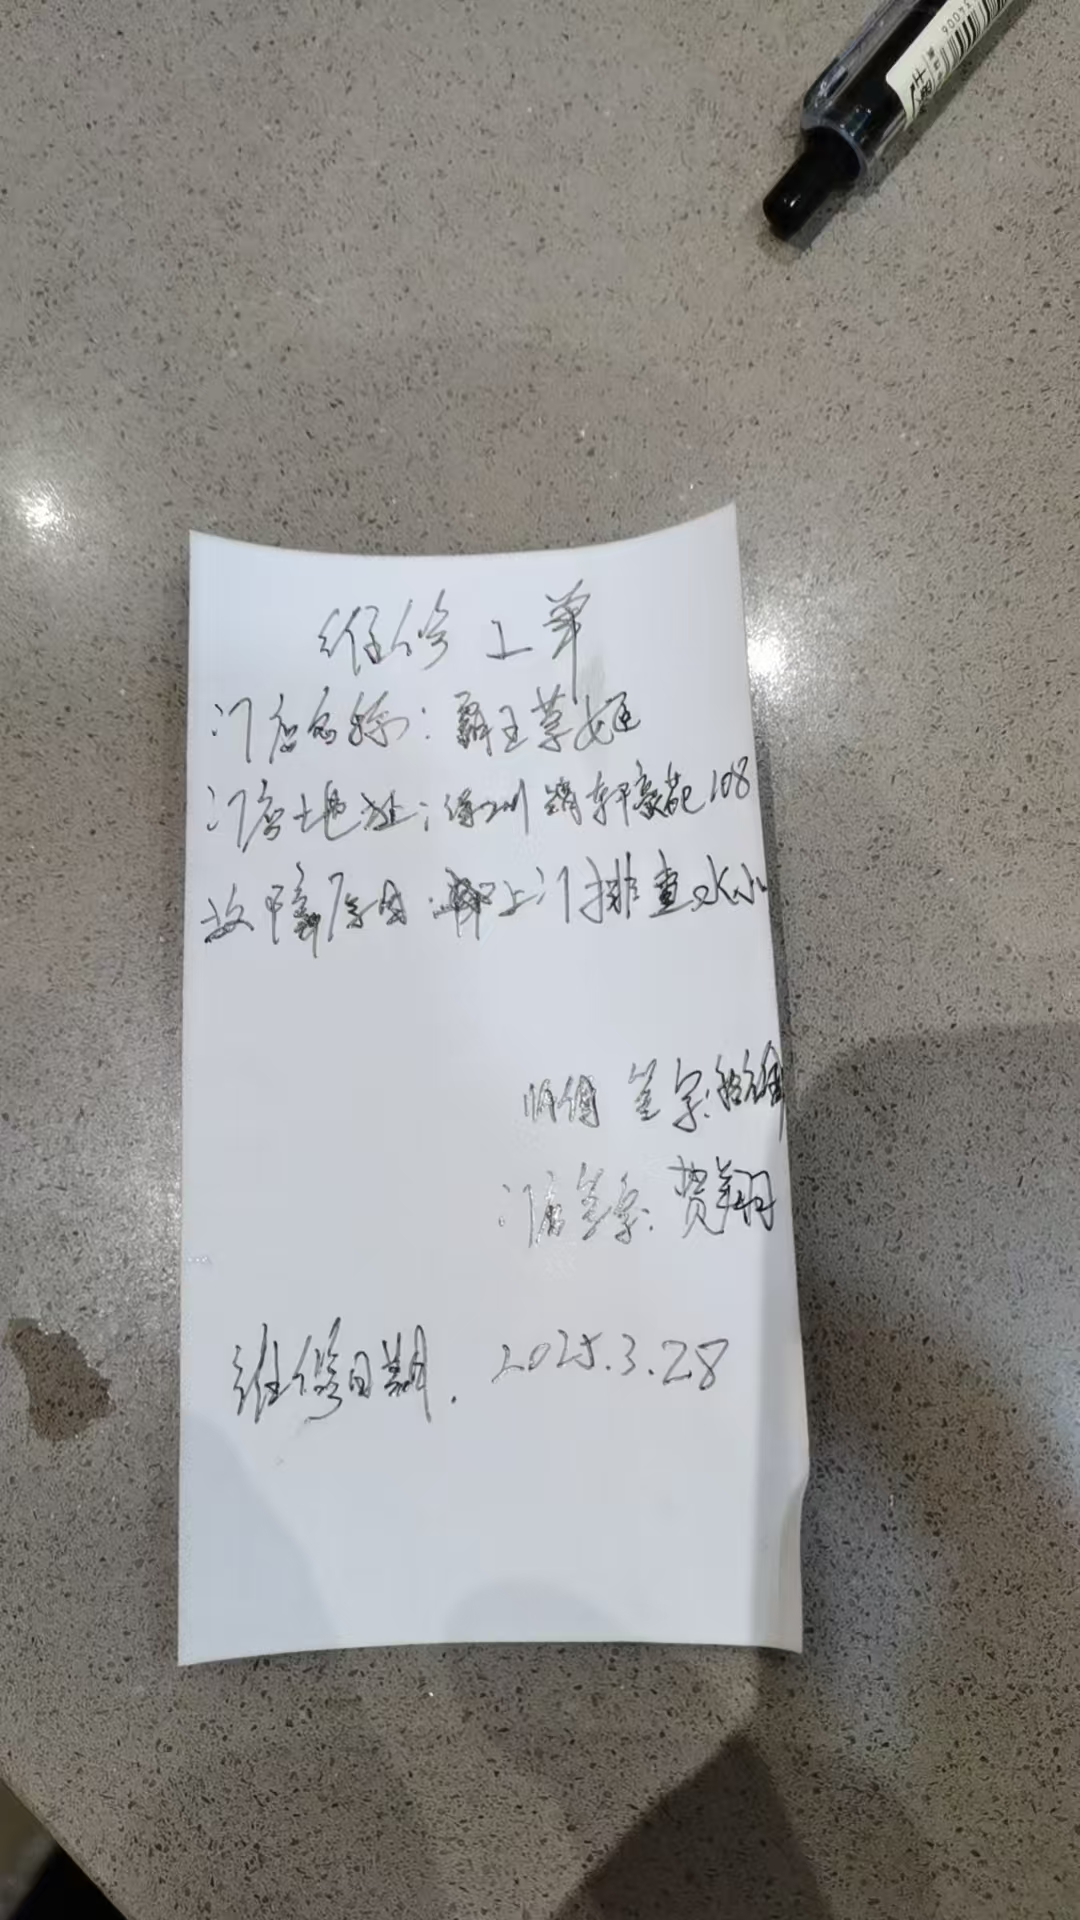 维修工单
门店名称：霸王茶姬
门店地址：徐州 轩豪苑108
故障原因：上门排查水小
师傅签字：
门店签字：费翔
维修日期. 2025.3.28